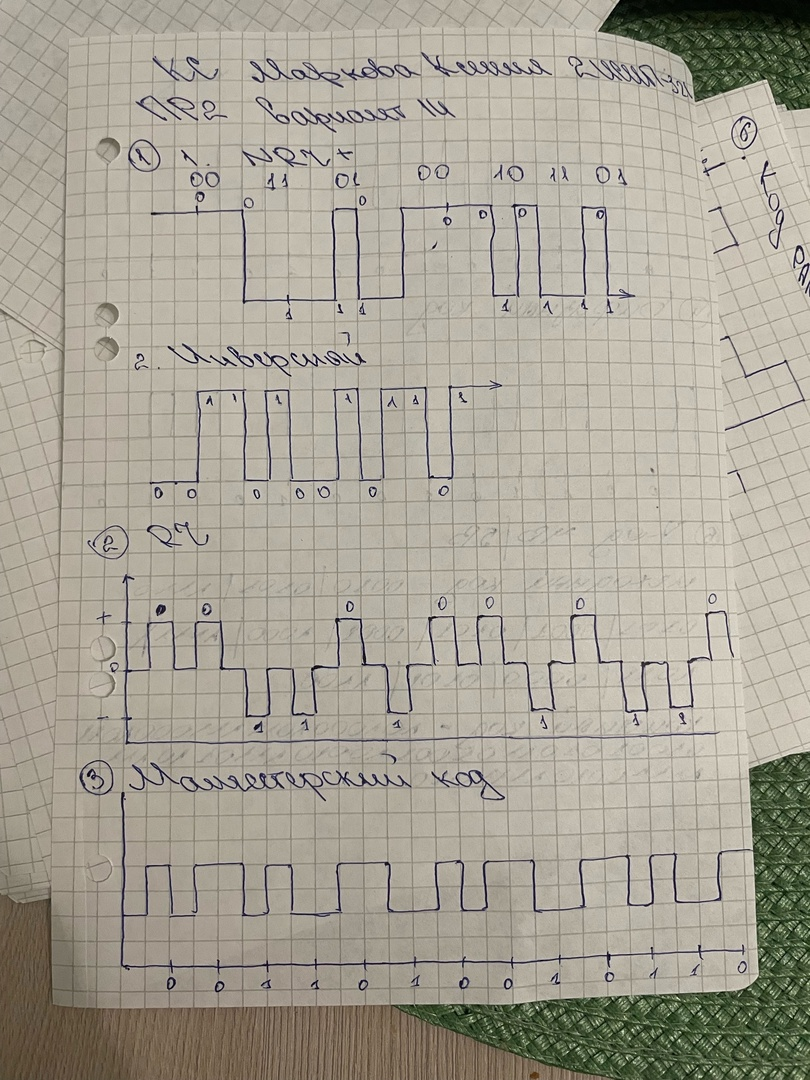 КС Маркова Ксения
ПР2 Вариант 14
① 1. NRZ +
00 11 01 00 10 11 01
0 0 0 0 0 0 0
1 1 1 1 1 1 1
2. Инверсный
1 1 1 1 1 1 1
0 0 0 0 0 0 0
② RZ
+ 0 0 0 0 0 0 0
0
- 1 1 1 1 1 1
③ Манчестерский код
0 0 1 1 0 1 0 0 1 0 1 1 0
⑥ Код